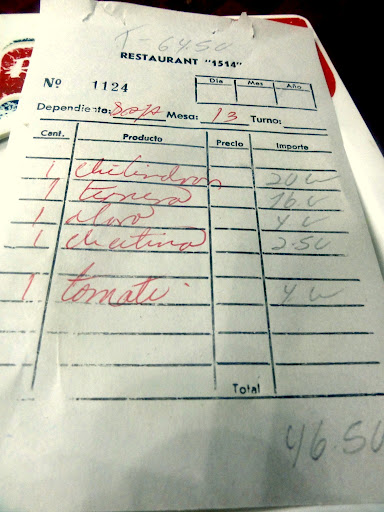 T- 64.50
RESTAURANT "1514"
Nº 1124
Dia Mes Año
Dependiente: Mesa: 13 Turno:
Cant. Producto Precio Importe
1 chilindron 20 00
1 ternera 16 00
1 4 00
1 2.50
1 tomate 4 00
Total
46.50